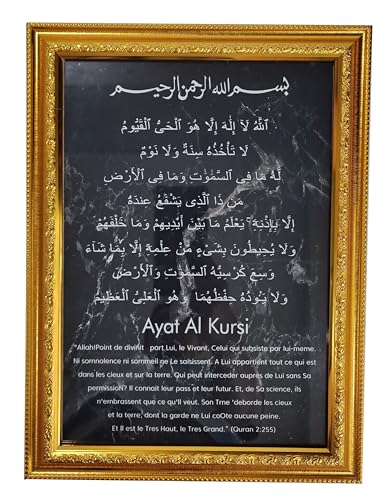 بسم الله الرحمن الرحيم
ٱللَّهُ لَآ إِلَٰهَ إِلَّا هُوَ ٱلْحَىُّ ٱلْقَيُّومُ
لَا تَأْخُذُهُ سِنَةٌ وَلَا نَوْمٌ
لَهُ مَا فِى ٱلسَّمَٰوَٰتِ وَمَا فِى ٱلْأَرْضِ
مَن ذَا ٱلَّذِى يَشْفَعُ عِندَهُ
إِلَّا بِإِذْنِهِ يَعْلَمُ مَا بَيْنَ أَيْدِيهِمْ وَمَا خَلْفَهُمْ
وَلَا يُحِيطُونَ بِشَىْءٍ مِّنْ عِلْمِهِ إِلَّا بِمَا شَآءَ
وَسِعَ كُرْسِيُّهُ ٱلسَّمَٰوَٰتِ وَٱلْأَرْضَ
وَلَا يَـُٔودُهُ حِفْظُهُمَا وَهُوَ ٱلْعَلِىُّ ٱلْعَظِيمُ
Ayat Al Kursi
"Allah!Point de divinit part Lui, le Vivant, Celui qui subsiste par lui-meme.
Ni somnolence ni sommeil ne Le saisissent. A Lui appartient tout ce qui est
dans les cieux et sur la terre. Qui peut interceder aupres de Lui sans Sa
permission? Il connait leur pass et leur futur. Et, de Sa science, ils
n'embrassent que ce qu'Il veut. Son Trne 'deborde les cieux
et la terre, dont la garde ne Lui caOte aucune peine.
Et Il est le Tres Haut, le Tres Grand." (Quran 2:255)